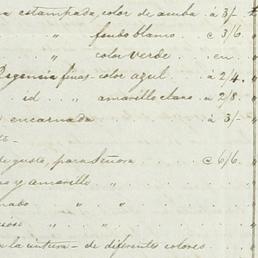 estampada, color de ambar . á 3/.
" fondo blanco . c 3/6
" color verde . en .
finas color azul . á 2/4.
id " amarillo claro . á 2/8.
encarnada . á 3/.
de gusto, para Señora c 6/6.
y amarillo " .
" "
" .
la cintura - de diferentes colores.